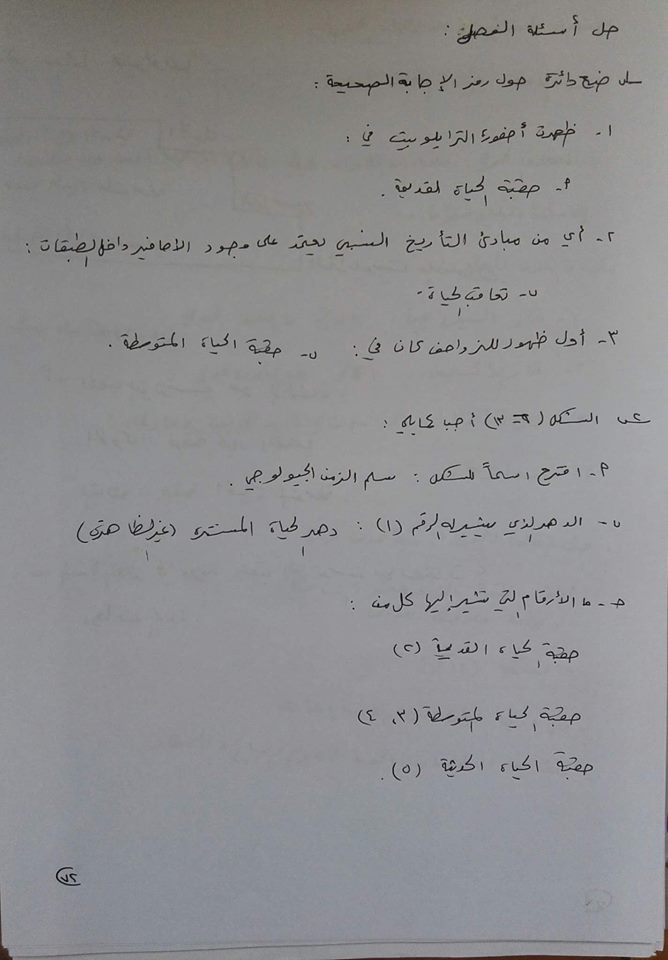 حل أسئلة الفصل:
س١ ضع دائرة حول رمز الإجابة الصحيحة:
١- ظهرت أحفورة الترايلوبيت في:
أ- حقبة الحياة القديمة.
٢- أي من مبادئ التأريخ النسبي يعتمد على وجود الأحافير داخل الطبقات:
ب- تعاقب الحياة-
٣- أول ظهور للزواحف كان في: ب- حقبة الحياة المتوسطة.
س٢ الشكل (٢-٣) أجب عما يلي:
أ- اقترح اسماً للشكل: سلم الزمن الجيولوجي.
ب- الدهر الذي يشير له الرقم (١): دهر الحياة المستترة (غير الظاهرة)
ج- ما الأرقام التي تشير إليها كل من:
حقبة الحياة القديمة (٢)
حقبة الحياة المتوسطة (٣، ٤)
حقبة الحياة الحديثة (٥).
٧٢